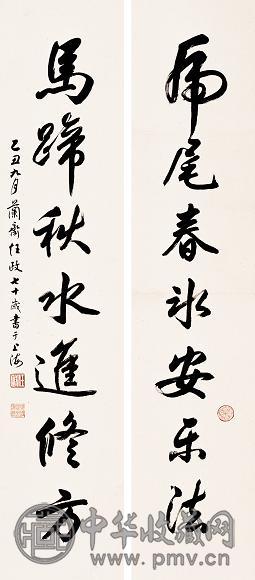 虎尾春氷安乐法
馬蹄秋水進修方
乙丑九月蘭齋任政七十歲書于上海
中华收藏网
www.pmv.cn